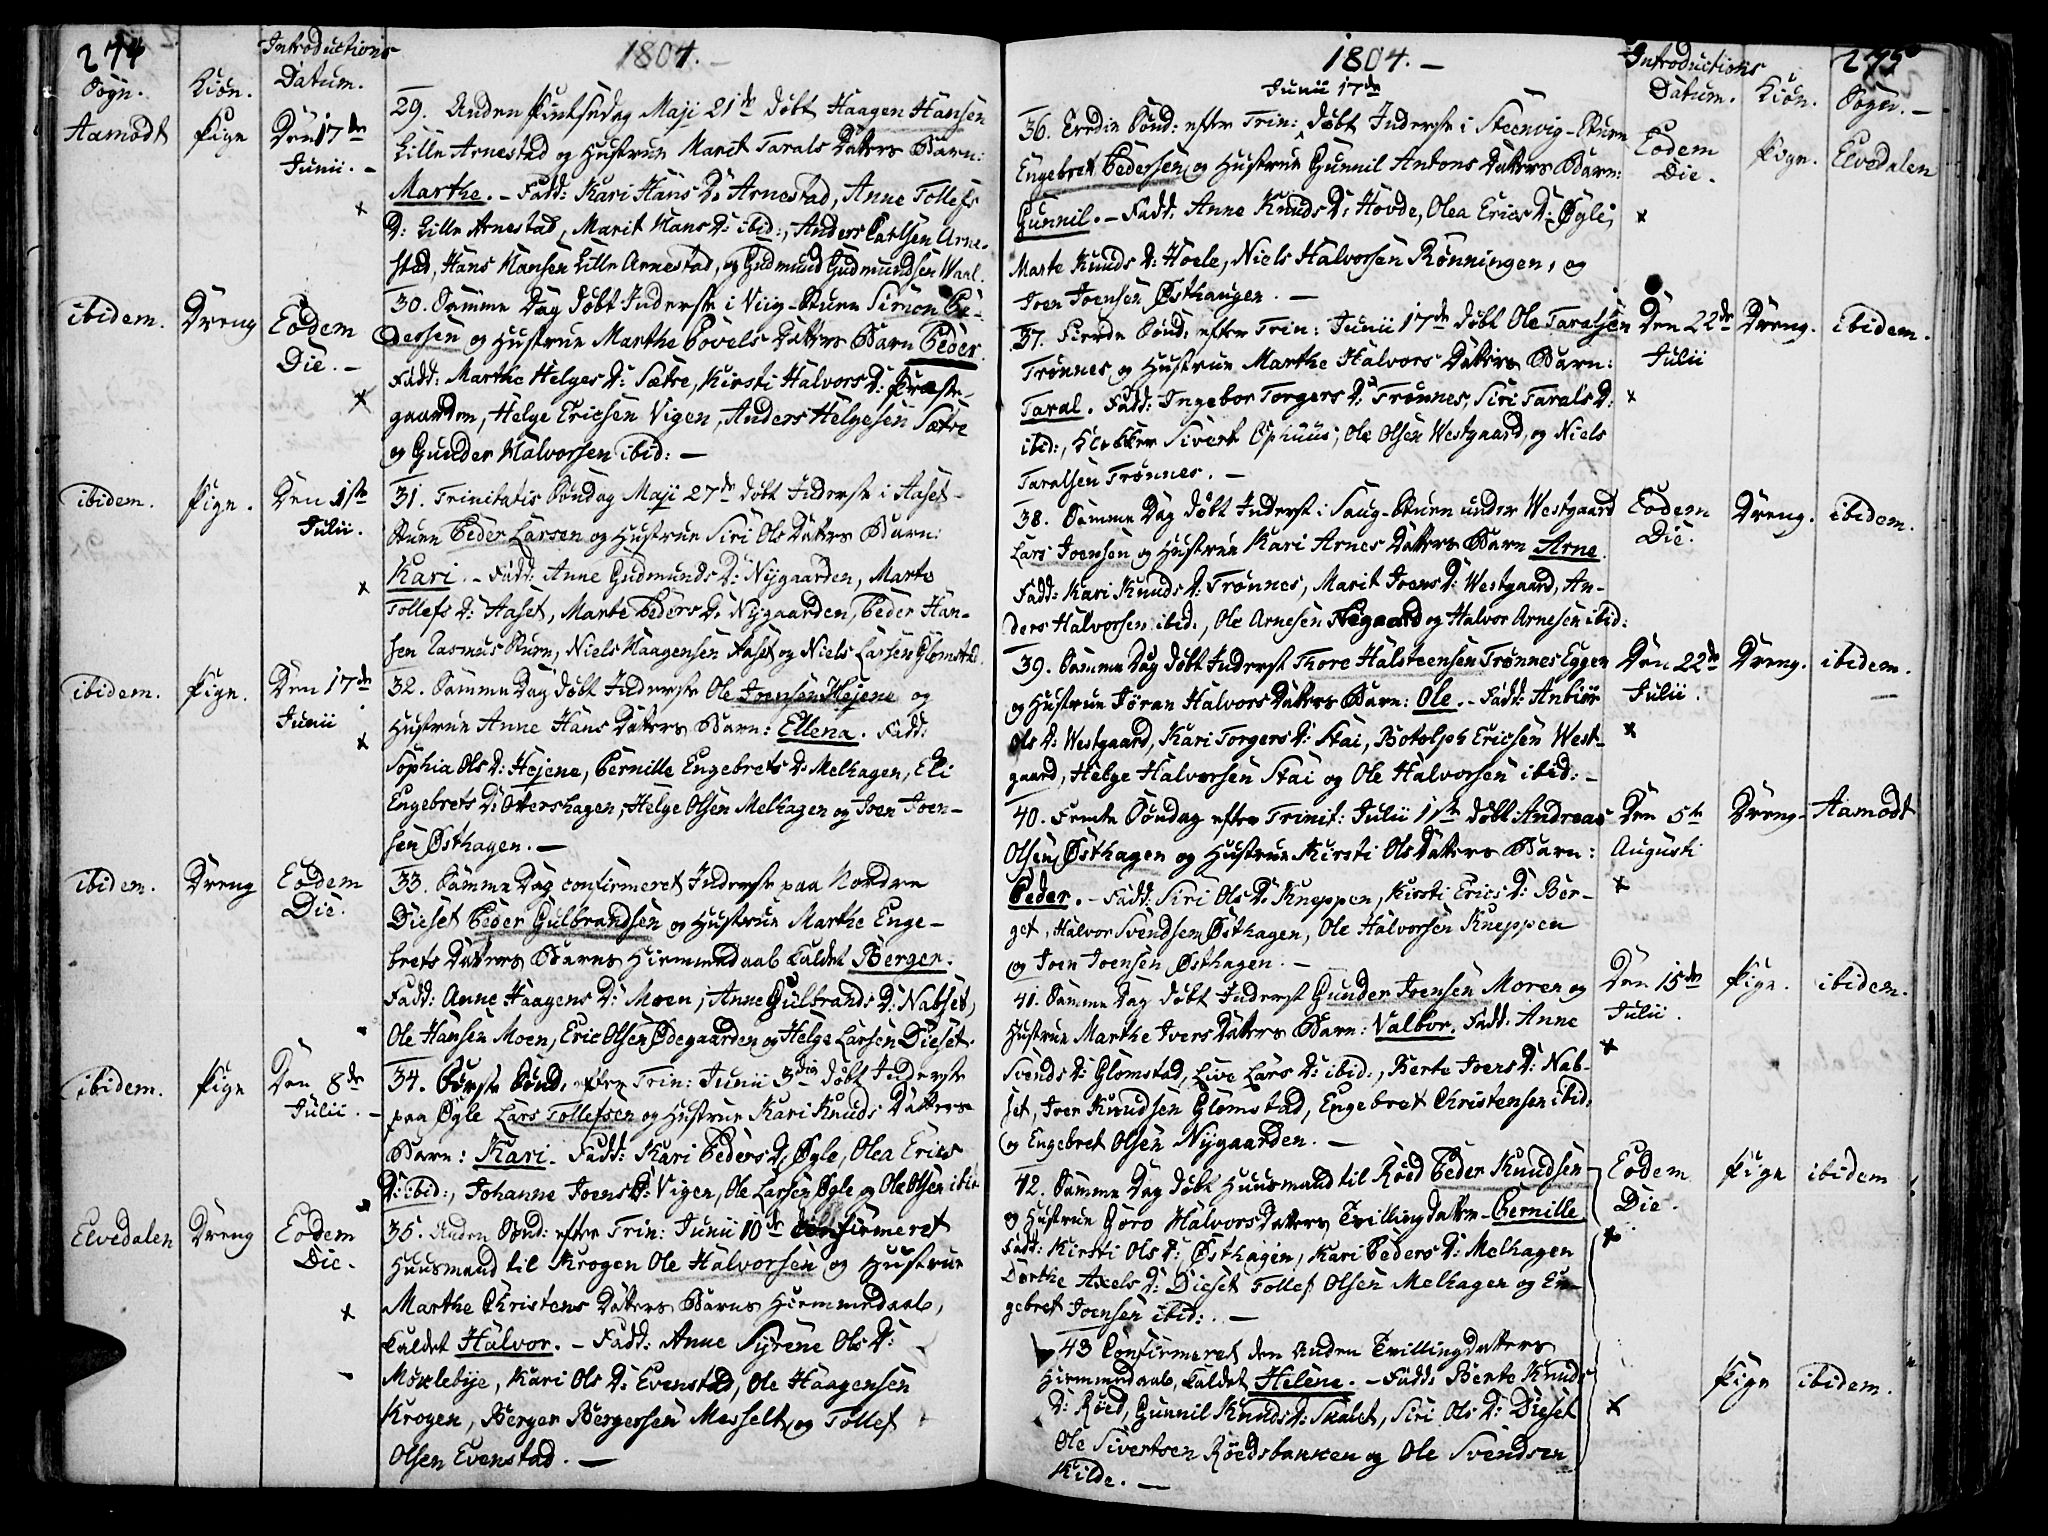 274
Introductions
1804. -
Sogn.
Kiön.
Datum.
Aamodt
Pige
Den 17de
Junii. -
29. Anden Pintsedag Maji 21de døbt Haagen Hansen
Lille Arnestad og Hustrue Marit Tarals Datters Barn:
Marthe. - Fadd: Kari Hans D: Arnestad, Anne Tollefs
D: Lille Arnestad, Marit Hans D: ibid:, Anders Carlsen Arne-
stad, Hans Hansen Lille Arnestad, og Gudmund Gudmundsen Waal.
ibidem.
Dreng
Eodem
Die. -
30. Samme Dag døbt Inderste i Viig-Stuen Simon Pe-
dersen og Hustrue Marthe Povels Datters Barn Peder.
Fadd: Marthe Helges D: Sætre, Kirsti Halvors D: Præste-
gaarden, Helge Ericsen Vigen, Anders Helgesen Sætre
og Gunder Halvorsen ibid: -
ibidem.
Pige.
Den 1ste
Julii.
31. Trinitatis Søndag Maji 27de døbt Inderste i Aaset-
Stuen Peder Larsen og Hustrue Siri Ols Datters Barn:
Kari. - Fadd: Anne Gudmunds D: Nygaarden, Marte
Tollefs D: Aaset, Marte Peders D: Nygaarden, Peder Han-
sen Rasmus Stuen, Niels Haagensen Aaset og Niels Larsen Glomstad.
ibidem.
Pige.
Den 17de
Junii
32. Samme Dag døbt Inderste Ole Joensen Hejene og
Hustrue Anne Hans Datters Barn: Ellena. Fadd:
Sophia Ols D: Hejene, Pernille Engebrets D: Melhagen, Eli
Engebrets D: Ottershagen, Helge Olsen Melhagen og Joen Joen-
sen Østhagen. -
ibidem.
Dreng
Eodem
Die.
33. Samme Dag confirmeret Inderste paa Nordre
Dieset Peder Gulbrandsen og Hustrue Marthe Enge-
brets Datters Barns Hiemmedaab kaldet Berger.
Fadd: Anne Haagens D: Moen, Anne Gulbrands D: Nabset,
Ole Hansen Moen, Eric Olsen Ødegaarden og Helge Larsen Dieset.
ibidem.
Pige
Den 8de
Julii. -
34. Første Sønd: efter Trin: Junii 3die døbt Inderste
paa Øgle Lars Tollefsen og Hustrue Kari Knuds Datters
Barn: Kari. Fadd: Kari Peders D: Øgle, Olea Erics
D: ibid:, Johanne Joens D: Vigen, Ole Larsen Øgle og Ole Olsen ibid
Elvedalen
Dreng
Eodem
Die.
35. Anden Sønd: efter Trin: Junii 10de confirmeret
Huusmand til Krogen Ole Halvorsen og Hustrue
Marthe Christens Datters Barns Hiemmedaab,
kaldet Halvor. - Fadd: Anne Syrene Ols D:
Møklebye, Kari Ols D: Evenstad, Ole Haagensen
Krogen, Berger Bergersen Messelt, og Tollef
Olsen Evenstad. -
1804. -
Introductions
275
Datum.
Kiön.
Sogn. -
Junii 17de
36. Tredie Sønd: efter Trin: døbt Inderste i Steenvig-Stuen
Engebret Pedersen og Hustrue Gunnil Antons Datters Barn:
Gunnil. - Fadd: Anne Knuds D: Hovde, Olea Erics D: Øgle,
Marte Knuds D: Hoele, Niels Halvorsen Rønningen, og
Joen Joensen Østhaugen. -
Eodem
Die.
Pige.
Elvedalen
37. Fierde Sønd: efter Trin: Junii 17de døbt Ole Taralsen
Trønnes og Hustrue Marthe Halvors Datters Barn:
Taral. Fadd: Ingebor Torgers D: Trønnes, Siri Tarals D:
ibid:, Klokker Sivert Ophuus, Ole Olsen Westgaard, og Niels
Taralsen Trønnes. -
Den 22de
Julii
Dreng.
ibidem.
38. Samme Dag døbt Inderst i Saug-Stuen under Westgaard
Lars Joensen og Hustrue Kari Arnes Datters Barn Arne.
Fadd: Kari Knuds D: Trønnes, Marit Joens D: Westgaard, An-
ders Halvorsen ibid:, Ole Arnesen og Halvor Arnesen ibid:
Eodem
Die.
Dreng.
ibidem.
39. Samme Dag døbt Inderst Thore Halsteensen Trønnes Eggen
og Hustrue Jöran Halvors Datters Barn: Ole. - Fadd: Anbiör
Ols D: Westgaard, Kari Torgers D: Stai, Botolph Ericsen West-
gaard, Helge Halvorsen Stai og Ole Halvorsen ibid: -
Den 22de
Julii.
Dreng.
ibidem.
40. Femte Søndag efter Trinit: Julii 1ste døbt Andreas
Olsen Østhagen og Hustrue Kirsti Ols Datters Barn:
Peder. - Fadd: Siri Ols D: Kneppen, Kirsti Erics D: Ber-
get, Halvor Svendsen Østhagen, Ole Halvorsen Kneppen
og Joen Joensen Østhagen. -
Den 5te
Augusti
Dreng-
Aamodt
41. Samme Dag døbt Inderst Gunder Joensen Moren og
Hustrue Marthe Ivers Datters Barn: Valbor. Fadd: Anne
Svends D: Glomstad, Live Lars D: ibid:, Berte Joens D: Nab-
set, Iver Knudsen Glomstad, Engebret Christensen ibid:
og Engebret Olsen Nygaarden. -
Den 15de
Julii.
Pige.
ibidem.
42. Samme Dag døbt Huusmand til Røed Peder Knudsen
og Hustrue Goro Halvors Datters Tvillingdatter - Pernille
Fadd: Kirsti Ols D: Østhagen, Kari Peders D: Melhagen
Dorthe Axels D: Dieset Tollef Olsen Melhagen og En-
gebret Joensen ibid: . -
Eodem
Die.
Pige
ibidem
43 Confirmeret den anden Tvillingdatters
Hiemmedaab, kaldet Helene. - Fadd: Berte Knuds
D: Røed, Gunnil Knuds D: Skalet, Siri Ols D: Dieset
Ole Sivertsen Røedsbakken og Ole Svendsen
Kilde. -
Pige
ibidem.